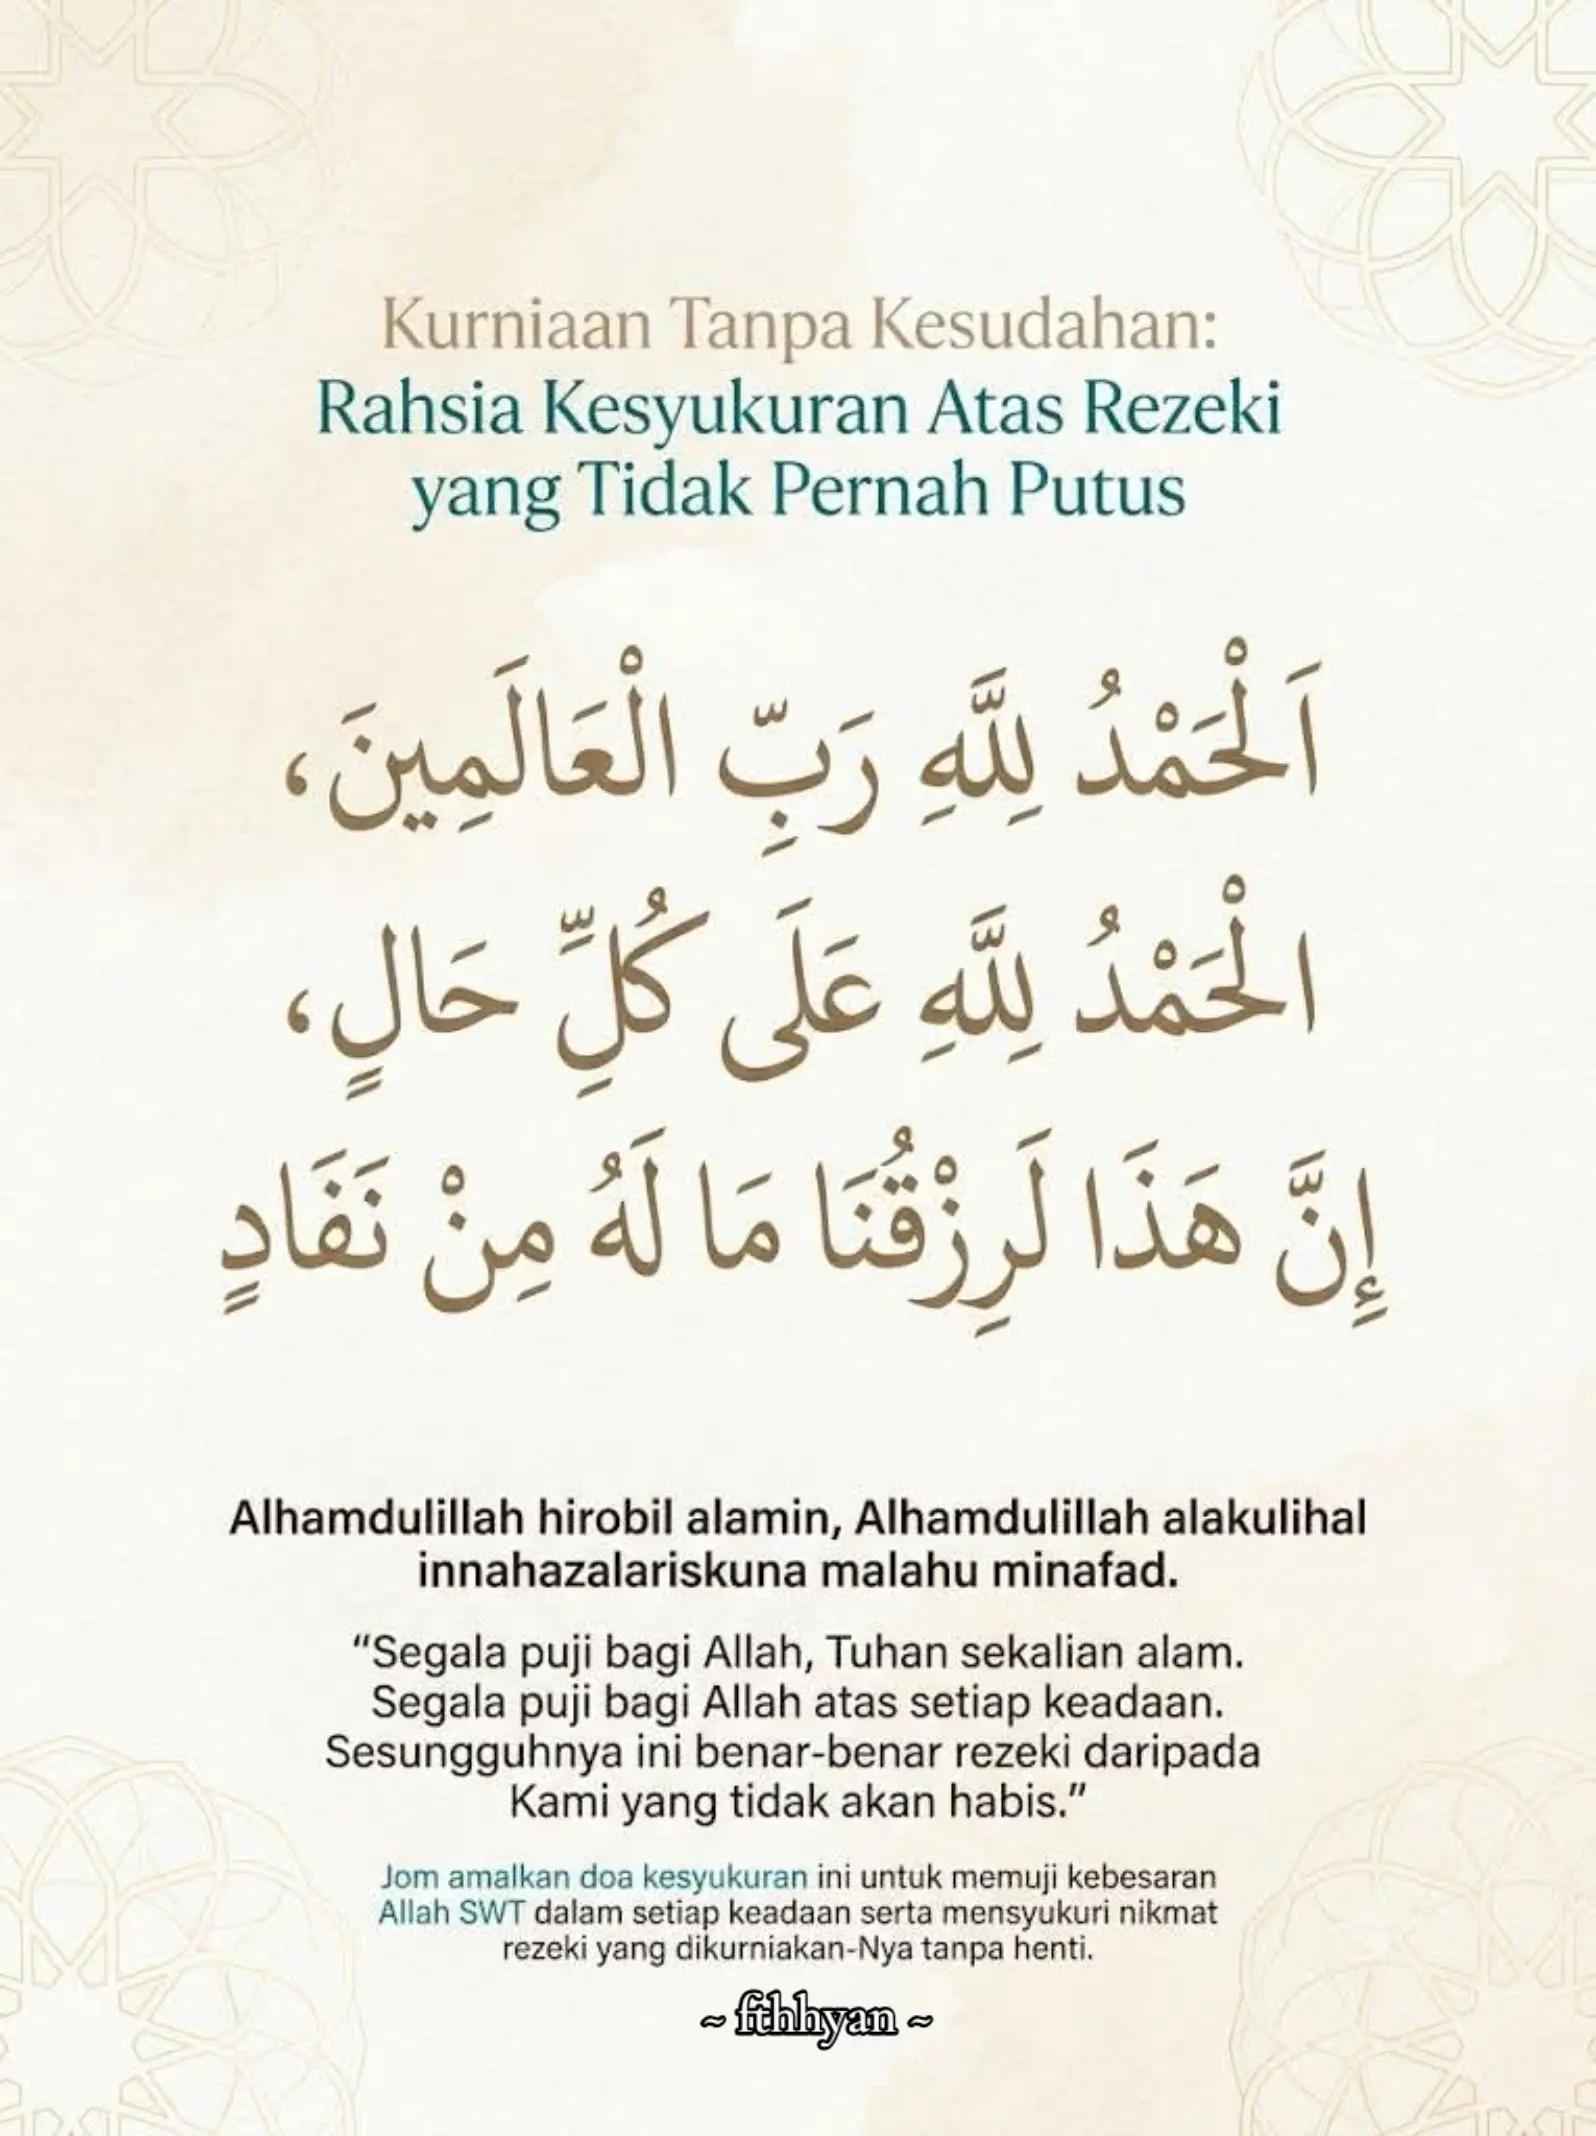 Kurniaan Tanpa Kesudahan:
Rahsia Kesyukuran Atas Rezeki
yang Tidak Pernah Putus
اَلْحَمْدُ لِلَّهِ رَبِّ الْعَالَمِينَ،
الْحَمْدُ لِلَّهِ عَلَى كُلِّ حَالٍ،
إِنَّ هَذَا لَرِزْقُنَا مَا لَهُ مِنْ نَفَادٍ
Alhamdulillah hirobil alamin, Alhamdulillah alakulihal
innahazalariskuna malahu minafad.
“Segala puji bagi Allah, Tuhan sekalian alam.
Segala puji bagi Allah atas setiap keadaan.
Sesungguhnya ini benar-benar rezeki daripada
Kami yang tidak akan habis.”
Jom amalkan doa kesyukuran ini untuk memuji kebesaran
Allah SWT dalam setiap keadaan serta mensyukuri nikmat
rezeki yang dikurniakan-Nya tanpa henti.
~ fthhyan ~